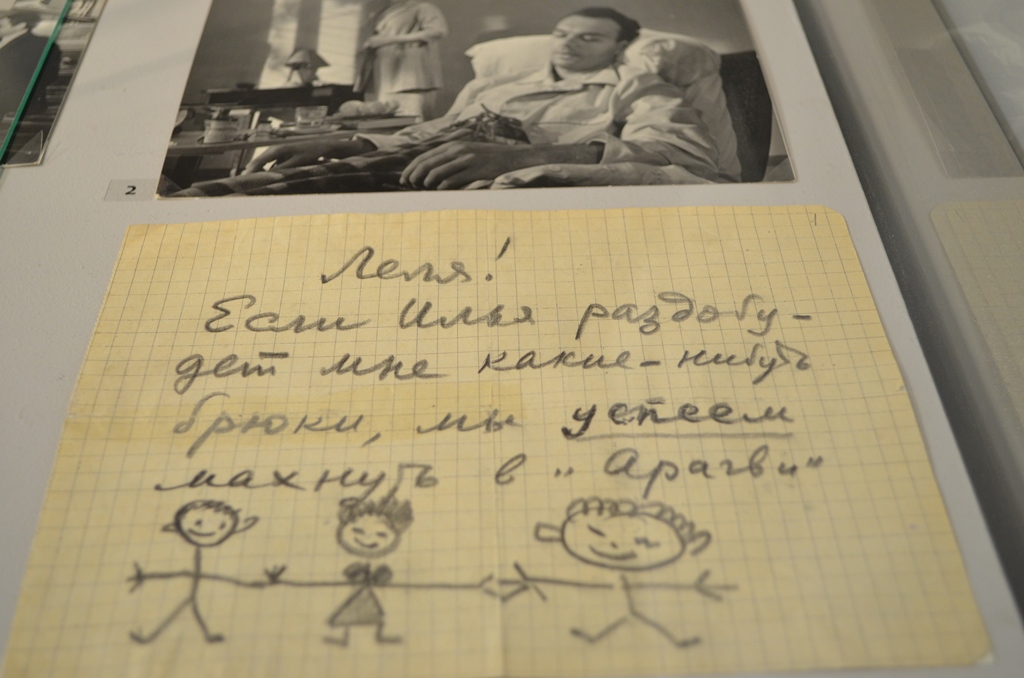 2
Леля!
Если Илья раздобу-
дет мне какие-нибуть
брюки, мы успеем
махнуть в „Арагви"